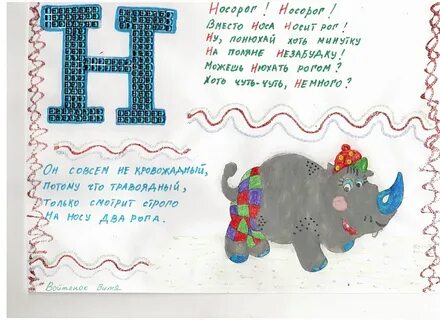 Н
Носорог! Носорог!
Вместо Носа Носит рог!
Ну, понюхай хоть минутку
На поляне Незабудку!
Можешь Нюхать рогом?
Хоть чуть-чуть, Немного?
Он совсем не кровожадный,
потому что травоядный,
только смотрит строго
на носу два рога.
Войтенок Витя